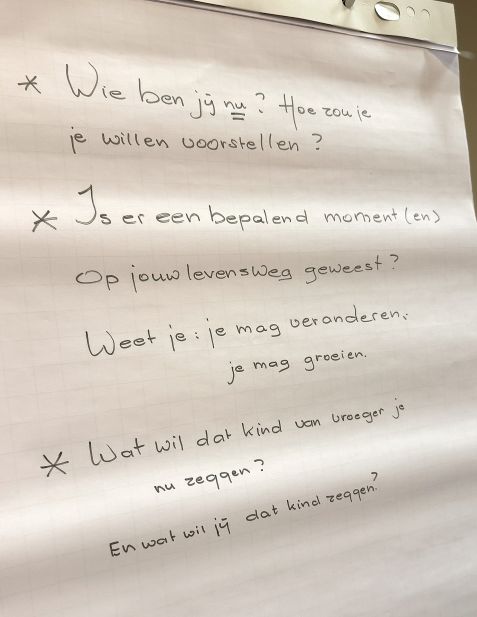 * Wie ben jij nu? Hoe zou je
je willen voorstellen?
* Is er een bepalend moment(en)
op jouw levensweg geweest?
Weet je: je mag veranderen.
je mag groeien.
* Wat wil dat kind van vroeger je
nu zeggen?
En wat wil jij dat kind zeggen?